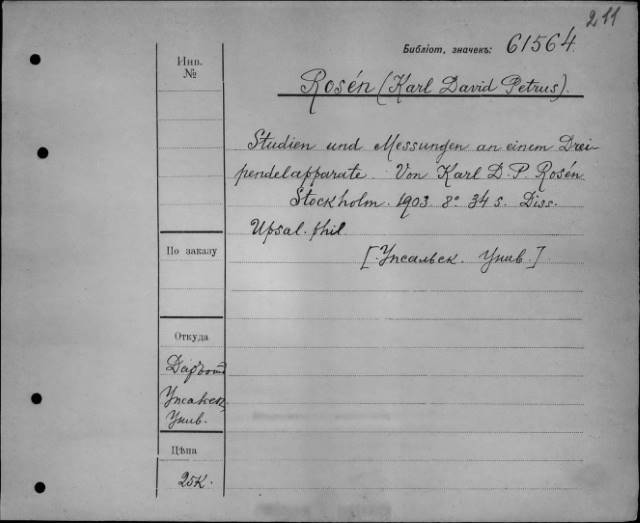 211
Библіот. значекъ: 61564
Инв.
№
Rosén (Karl David Petrus).
Studien und Messungen an einem Drei-
pendelapparate. Von Karl D. P. Rosén.
Stockholm. 1903. 8° 34 s. Diss.
Upsal. phil.
По заказу
[Упсальск. Унив.]
Откуда
Упсальск.
Унив.
Цѣна
25к.